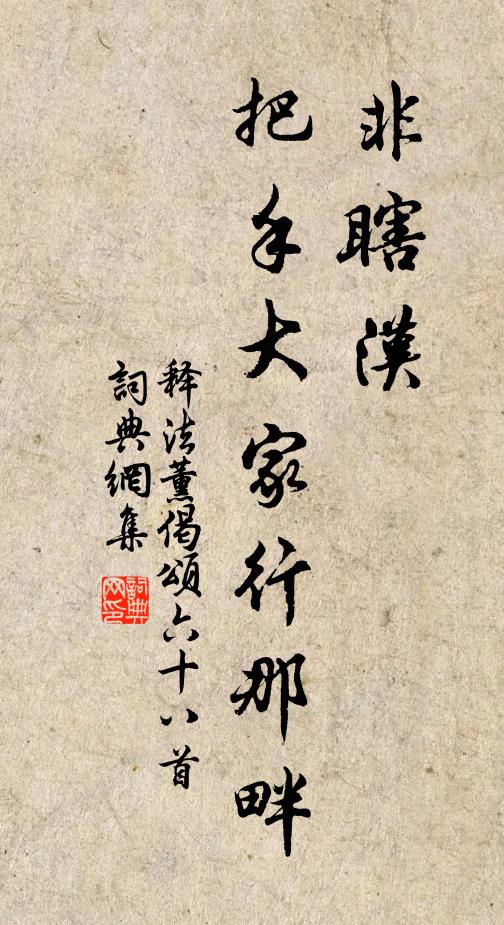 非瞎漢
把手大家行那畔
释法薰偈頌六十八首
詞典網集
詞典
网印